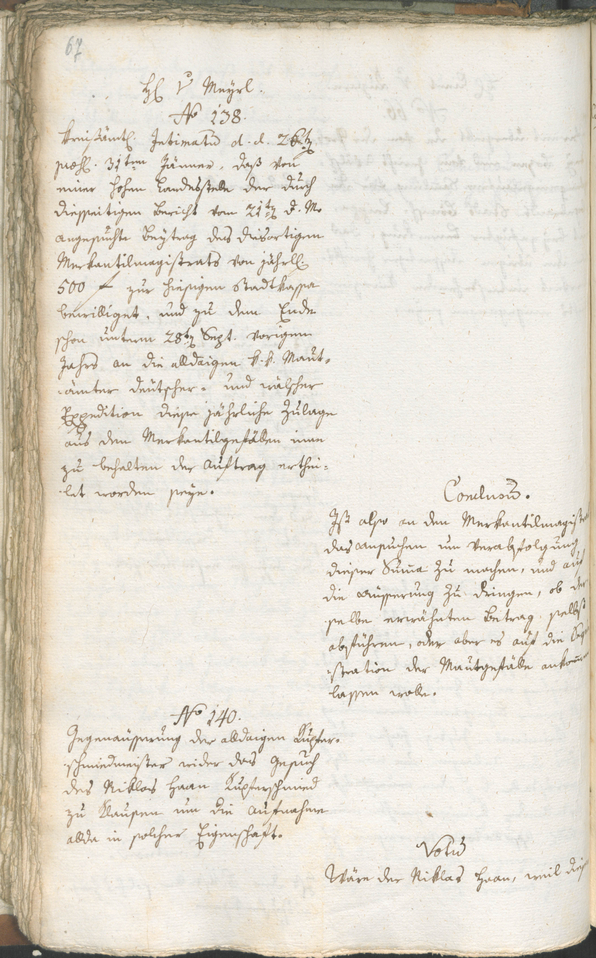 67
H. v. Meyrl.
No 138.
Kreisämtl. Intimatum d. d. 26ten
præs. 31ten Jänner, daß von
einer hohen Landesstelle der durch
diesseitigen Bericht vom 21ten d. M.
angesuchte Beytrag des diesortigen
Merkantilmagistrats von jährl.
500 f zur hiesigen Stadtkassa
bewilliget, und zu dem Ende
schon unterm 28ten Sept. vorigen
Jahrs an die alldaigen k. k. Maut-
ämter deutscher- und wälscher
Expedition diese jährliche Zulage
aus den Merkantilgefällen inne
zu behalten der Auftrag erthei-
let worden seye.
Conclusum.
Ist also an den Merkantilmagist
das Ansuchen um Verabfolgung
dieser Summa zu machen, und auf
die Äusserung zu dringen, ob der
selbe erwähnten Betrag selbst
abführen, oder aber es auf die
der Mautgefälle ankommen
lassen wolle.
No 140.
Gegenäusserung der alldaigen Kupfer-
schmiedmeister wider das Gesuch
des Niklas Haan Kupferschmied
zu Klausen um die Aufnahme
allda in solcher Eigenschaft.
Votum
Wäre der Niklas Haan, weil